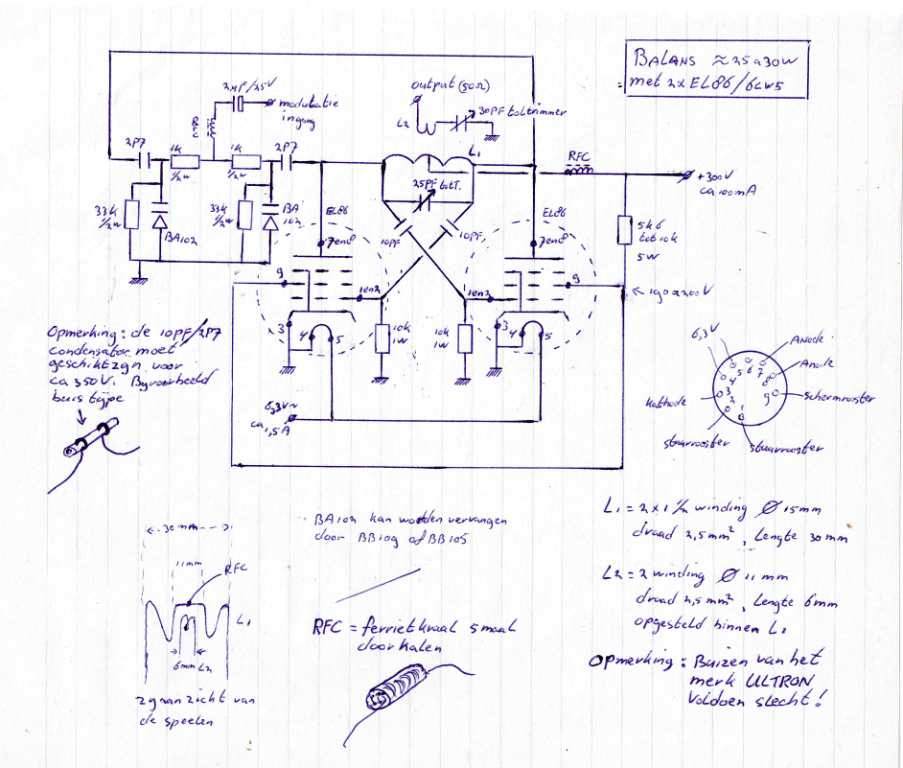 BALANS ≈ 25 a 30W
met 2x EL86/6CW5
2µF/25V
modulatie
ingang
output (50Ω)
30PF toltrimmer
L2
L1
2P7
1k
½W
1k
½W
2P7
RFC
+300V
ca 100mA
25PF tolT.
33k
½W
BA102
33k
½W
BA
102
EL86
7en8
10PF
10PF
EL86
7en8
5k6
tot 10k
5W
9
1en2
1en2
9
190 a 200V
3
4
5
10k
1W
10k
1W
3
4
5
6,3V~
ca 1,5A
Opmerking: de 10PF/2P7
condensator moet
geschikt zijn voor
ca 350V. Bijvoorbeeld
buis type
6,3V
Anode
Anode
Schermrooster
Kathode
stuurrooster
stuurrooster
1
2
3
4
5
6
7
8
9
BA102 kan worden vervangen
door BB109 of BB105
RFC = ferrietkraal 5 maal
doorhalen
30mm
11mm
RFC
L1
6mm L2
zijaanzicht van
de spoelen
L1 = 2 x 1½ winding Ø 15mm
draad 2,5mm², Lengte 30mm
L2 = 2 winding Ø 11mm
draad 2,5mm², Lengte 6mm
opgesteld binnen L1
Opmerking: Buizen van het
merk ULTRON
voldoen slecht!